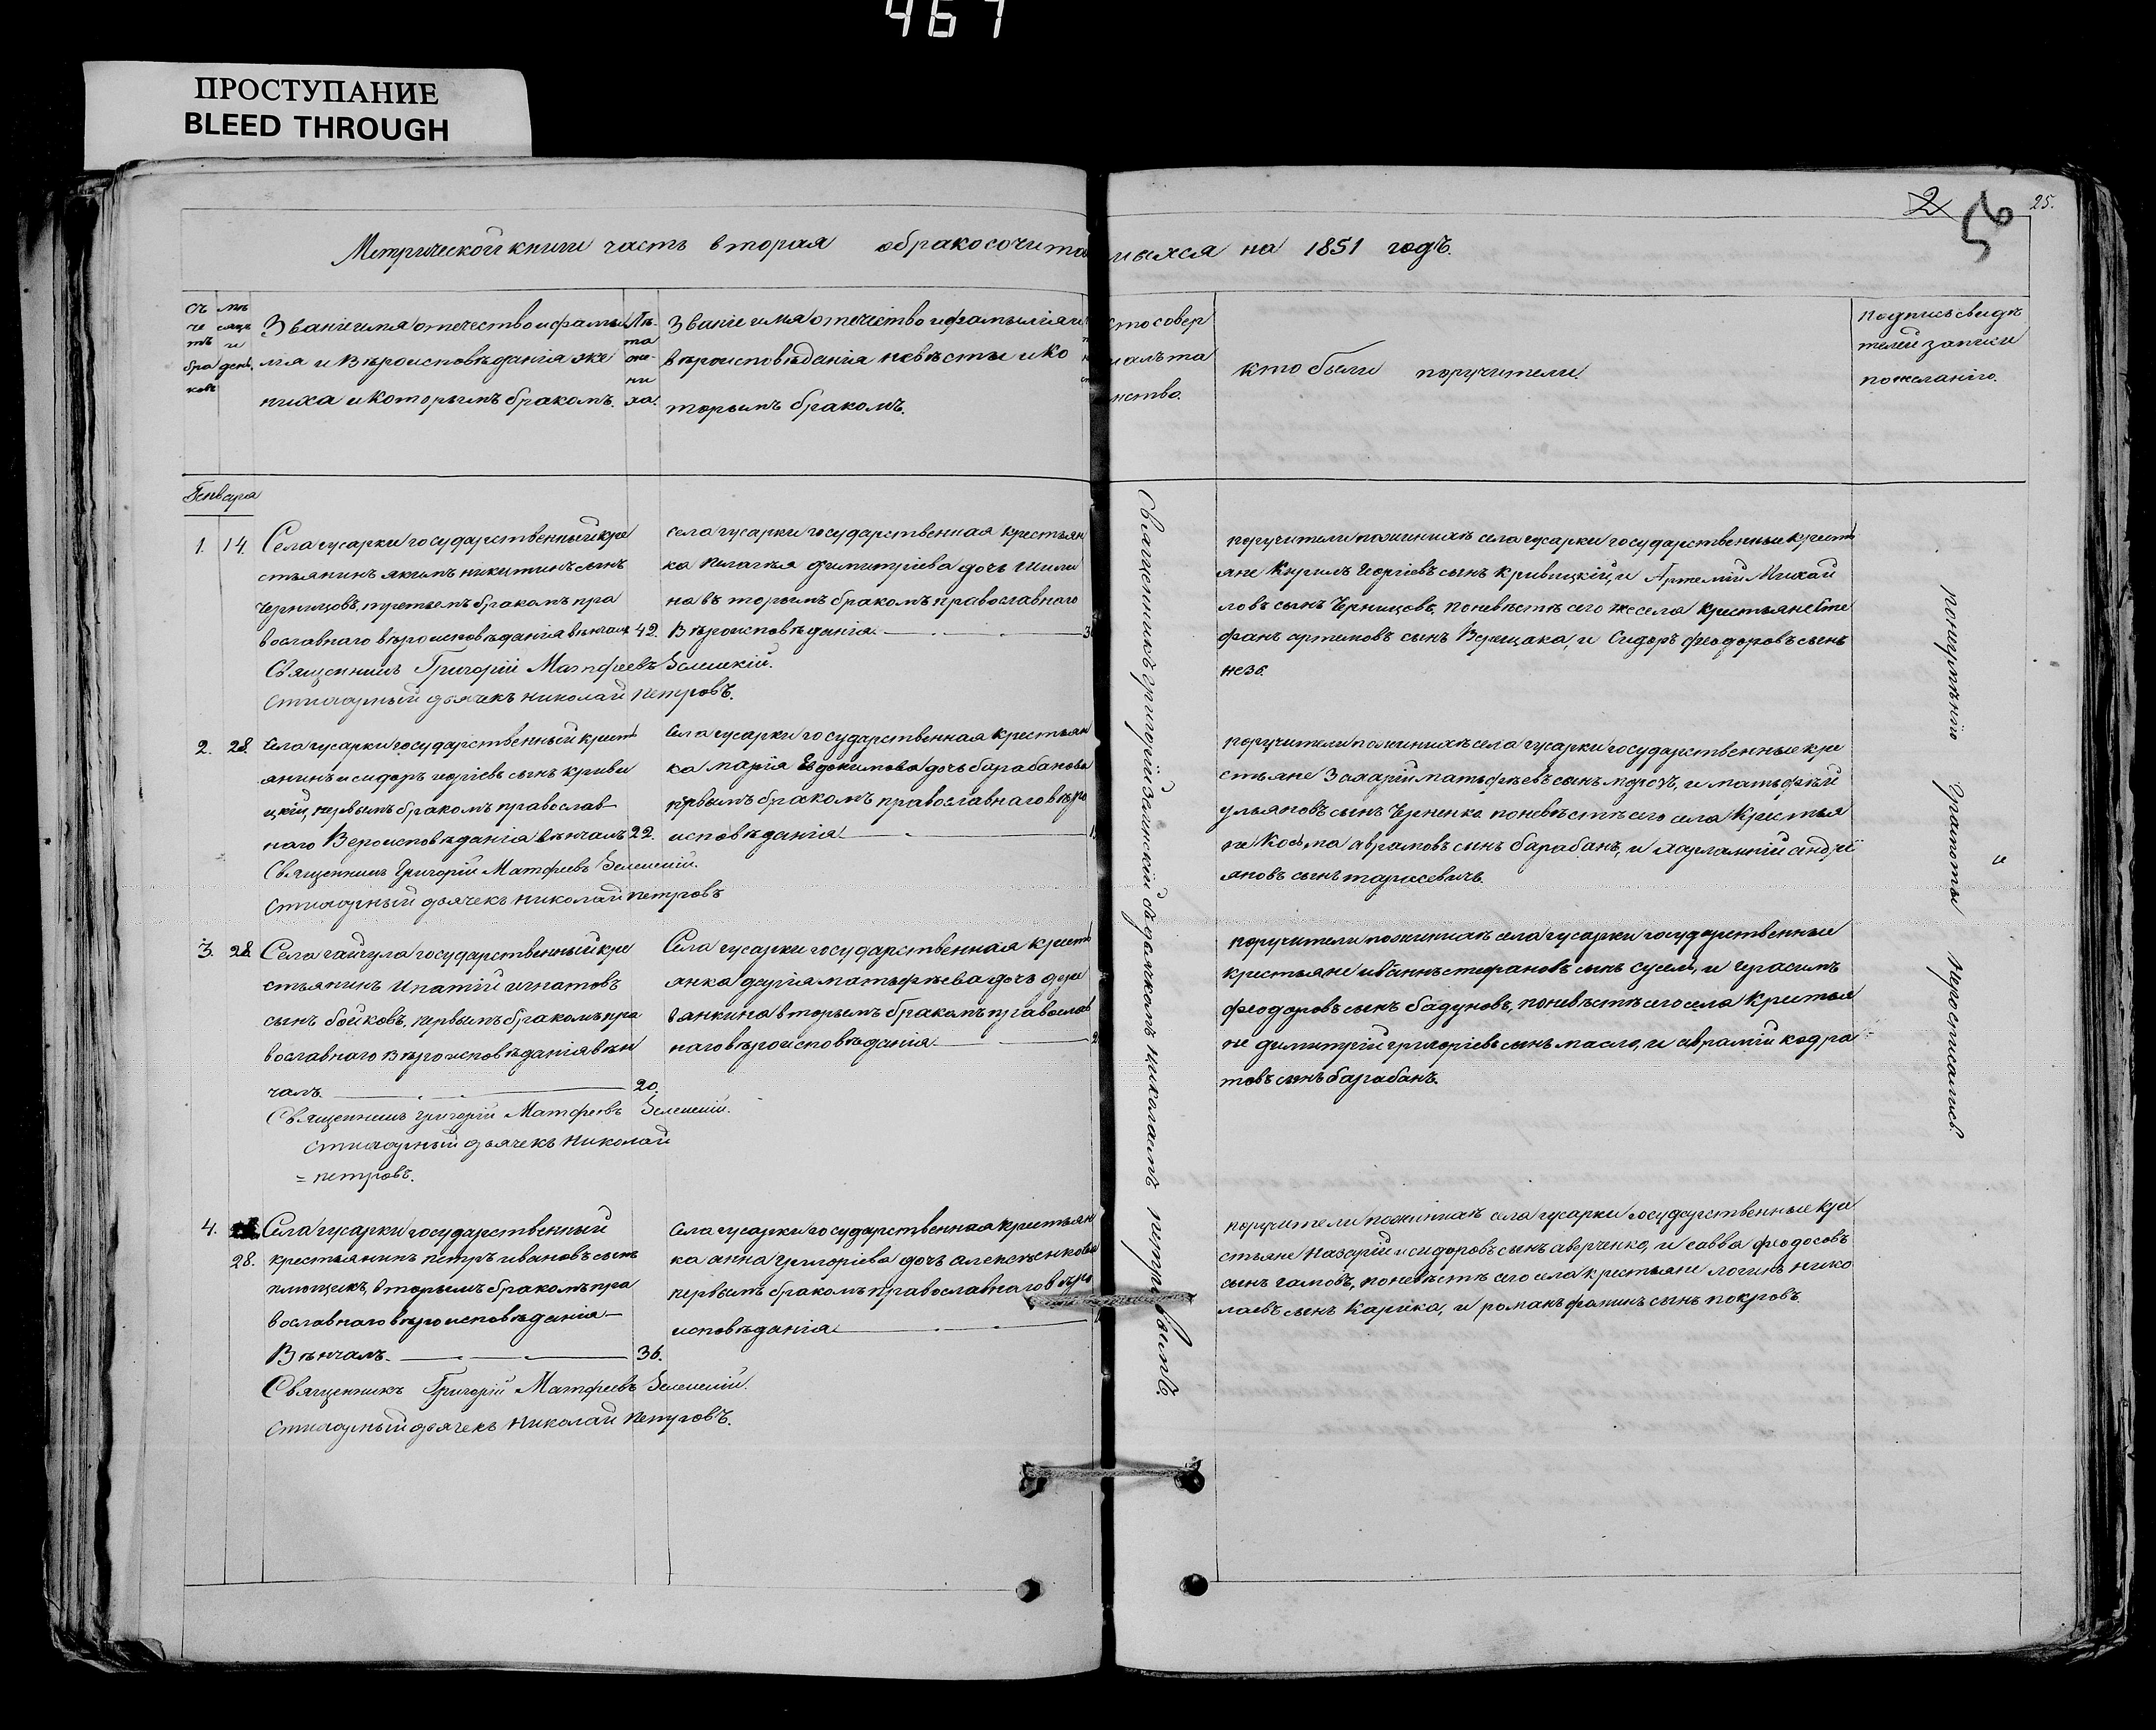 467
ПРОСТУПАНИЕ
BLEED THROUGH
2 56 25.
Метрической книги часть вторая о бракосочита
ихся на 1851 годъ.
Съ
че
тъ
бра
ковъ
мѣ
сяцъ
и
день.
Званіе имя отечество и фами
лія и вѣроисповѣданія же
ниха и которымъ бракомъ.
Лѣ-
та
же-
ни
ха.
Званіе имя отечество и фамилія и
вѣроисповѣданія невѣсты и ко
торымъ бракомъ.
кто совер
шалъ та
инство.
кто были поручители.
Подпись свидѣ
телей записи
по желанію.
Генваря
1. 14.
Села гусарки государственный кре
стьянинъ якимъ никитинъ сынъ
Чернцовъ, третьемъ бракомъ пра
вославнаго вѣроисповѣданія вѣнчалъ 42.
Священникъ Григорій Матфеевъ Зелинскій.
Стихарный дьячекъ Николай Петровъ.
села гусарки государственная крестьян
ка Пелагея димитріева дочь Шили
на вторымъ бракомъ православнаго
Вѣроисповѣданія
поручители по жинихѣ села гусарки государственные крест
яне Кирилъ Георгіевъ сынъ Кривицкій, и Артемій Михай
ловъ сынъ Чернцовъ, по невѣстѣ сего же села крестьяне Сте
фанъ артемовъ сынъ Верещака, и Сидоръ феодоровъ сынъ
незб.
2. 28.
Села гусарки государственный крест
янинъ исидоръ георгіевъ сынъ криви
цкій, первымъ бракомъ православ
наго Вероисповѣданія вѣнчалъ 22.
Священникъ Григорій Матфеевъ Зелинскій.
Стихарный дьячекъ Николай Петровъ
Села гусарки государственная крестьян
ка марія Евдокимова дочь барабанова
первымъ бракомъ православнаго вѣро
исповѣданія
поручители по жинихѣ села гусарки государственные кре
стьяне Захарій матьфѣевъ сынъ морозъ, и матьфѣй
ульяновъ сынъ Черненко по невѣстѣ сего села Крестья
не Косьма аврамовъ сынъ барабанъ, и харлампій андрі
яновъ сынъ тарасевичъ.
3. 28.
Села гайчула государственный кре
стьянинъ Ипатій игнатовъ
сынъ бойковъ, первымъ бракомъ пра
вославнаго вѣроисповѣданія вѣн
чалъ 20.
Священникъ Григорій Матфеевъ Зелинскій.
Стихарный дьячекъ Николай
= петровъ.
Села гусарки государственная крест
янка дарія матьфѣева дочь дере
вянкина вторымъ бракомъ православ
наго вѣроисповѣданія
поручители по жинихѣ села гусарки государственные
крестьяне иванъ стефановъ сынъ сусель, и герасимъ
феодоровъ сынъ бадуновъ, по невѣстѣ сего села Крестья
не димитрій григоріевъ сынъ масло, и аврамій кодра
товъ сынъ барабанъ.
4. 28.
Села гусарки государственный
крестьянинъ петръ ивановъ сынъ
плющикъ, вторымъ бракомъ пра
вославнаго вѣроисповѣданія
Вѣнчалъ. 36.
Священникъ Григорій Матфеевъ Зелинскій.
Стихарный дьячекъ Николай Петровъ.
Села гусарки государственная крестьян
ка анна григоріева дочь алексѣенкова
первымъ бракомъ православнаго вѣро
исповѣданія
поручители по жинихѣ села гусарки государственные кре
стьяне Назарій исидоровъ сынъ аверченко, и савва феодосовъ
сынъ гамовъ, по невѣстѣ сего села крестьяне логинъ нико
лаевъ сынъ Карика, и романъ фоминъ сынъ покровъ.
Священникъ григорій Зелинскій съ дьячкомъ Николаемъ петровымъ.
по неумѣнію грамоты не росписались.